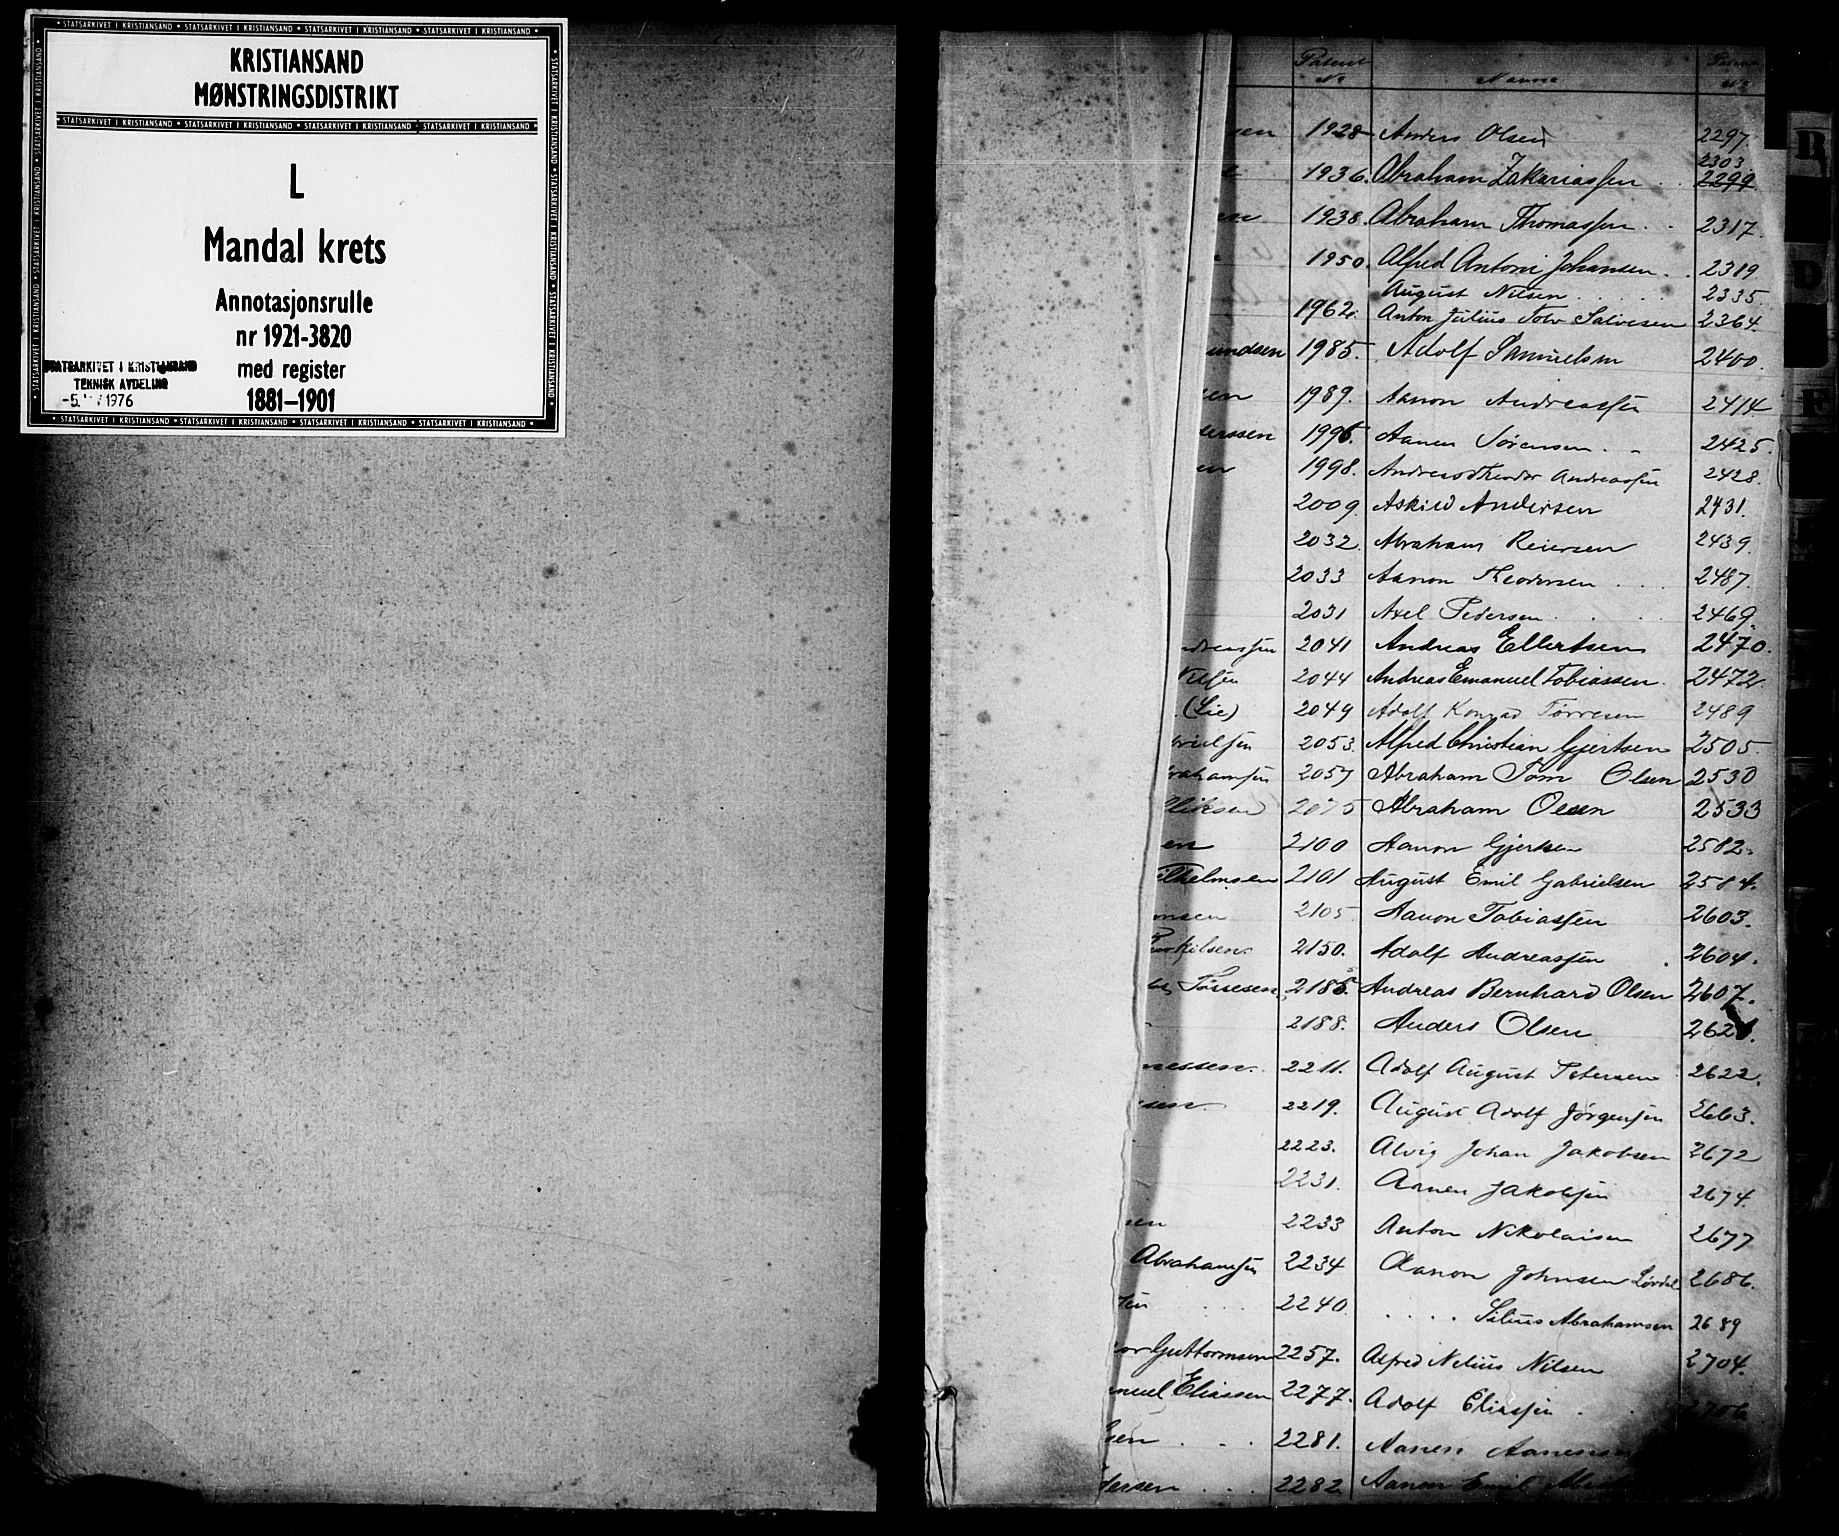 KRISTIANSAND
MØNSTRINGSDISTRIKT
L
Mandal krets
Annotasjonsrulle
nr 1921-3820
med register
1881–1901
STATSARKIVET I KRISTIANSAND
TEKNISK AVDELING
1976
Patent No Navne Patent No
sen 1928 Anders Olsen 2297
2303
1936. Abraham Zakariassen 2299
en 1938. Abraham Thomassen 2317.
1950. Alfred Antoni Johansen 2319
August Nilsen 2335.
1962. Anton Julius Tolv Salvesen 2364.
undsen 1985. Adolf Samuelsen 2400.
sen 1989. Aanon Andreassen 2414
derssen 1996. Aanen Sørensen 2425.
en 1998. Andreas Theodor Andreassen 2428.
2009. Askild Andersen 2431.
2032. Abraham Reiersen 2439.
2033 Aanon Theodorsen 2487.
2031 Axel Pedersen 2469.
ndreassen 2041 Andreas Ellertsen 2470.
2044 Andreas Emanuel Tobiassen 2472.
(Lie) 2049 Adolf Konrad Tørresen 2489
brielsen 2053. Alfred Christian Gjertsen 2505.
brahamsen 2057 Abraham Tom Olsen 2530
2075 Abraham Olsen 2533
en 2100 Aanon Gjertsen 2582.
ilhelmsen 2101 August Emil Gabrielsen 2584.
onsen 2105. Aanon Tobiassen 2603.
2150. Adolf Andreassen 2604.
Tørresen 2185. Andreas Bernhard Olsen 2607.
2188. Anders Olsen 2621.
nessen. 2211. Adolf August Petersen 2622.
sen. 2219. August Adolf Jørgensen 2663.
2223. Alvig Johan Jakobsen 2672
2231. Aanen Jakobsen 2674.
sen 2233 Anton Nikolaisen 2677
Abrahamsen 2234 Aanon Johnsen Lørdal 2686.
sen 2240 Silius Abrahamsen 2689
or Guttormsen 2257. Alfred Nelius Nilsen 2704.
nuel Eliassen 2277. Adolf Eliassen 2706
sen 2281. Aanen Aanensen
dersen 2282 Aanon Emil
B
D
F